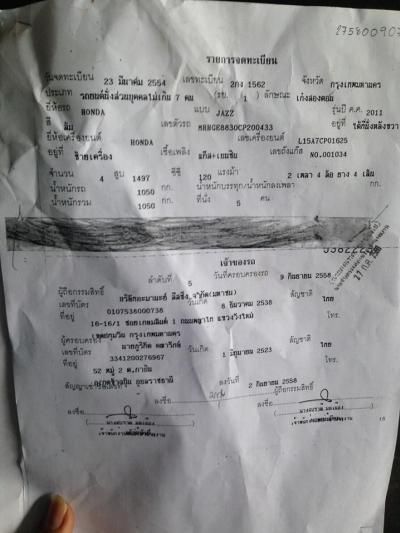 275800907
รายการจดทะเบียน
วันจดทะเบียน 23 มีนาคม 2554 เลขทะเบียน 2กง 1562 จังหวัด กรุงเทพมหานคร
ประเภท รถยนต์นั่งส่วนบุคคลไม่เกิน 7 คน (รย. 1) ลักษณะ เก๋งสองตอน
ยี่ห้อรถ HONDA แบบ JAZZ รุ่นปี ค.ศ. 2011
สี ส้ม เลขตัวรถ MRHGE8830CP200433 อยู่ที่
ยี่ห้อเครื่องยนต์ HONDA เลขเครื่องยนต์ L15A7CP01625
อยู่ที่ ซ้ายเครื่อง เชื้อเพลิง เลขถังแก๊ส NO.001034
จำนวน 4 สูบ 1497 ซีซี 120 แรงม้า 2 เพลา 4 ล้อ ยาง 4 เส้น
น้ำหนักรถ 1050 กก. น้ำหนักบรรทุก/น้ำหนักลงเพลา กก.
น้ำหนักรวม 1050 กก. ที่นั่ง 5 คน
เจ้าของรถ
ลำดับที่ 5 วันที่ครอบครองรถ 9 กันยายน 2558
ผู้ถือกรรมสิทธิ์ จำกัด(มหาชน)
เลขที่บัตร 0107538000738 วันเกิด 8 ธันวาคม 2538 สัญชาติ ไทย
ที่อยู่ 16-16/1 แขวงวังใหม่ โทร.
เขตปทุมวัน กรุงเทพมหานคร
ผู้ครอบครอง
เลขที่บัตร 3341200276967 วันเกิด 1 มิถุนายน 2523 สัญชาติ ไทย
ที่อยู่ 52 หมู่ 2 โทร.
อุบลราชธานี
สัญญาเช่าซื้อเลขที่ ลงวันที่ 2 กันยายน 2558 ผู้ถือกรรมสิทธิ์
ลงชื่อ ลงชื่อ
16